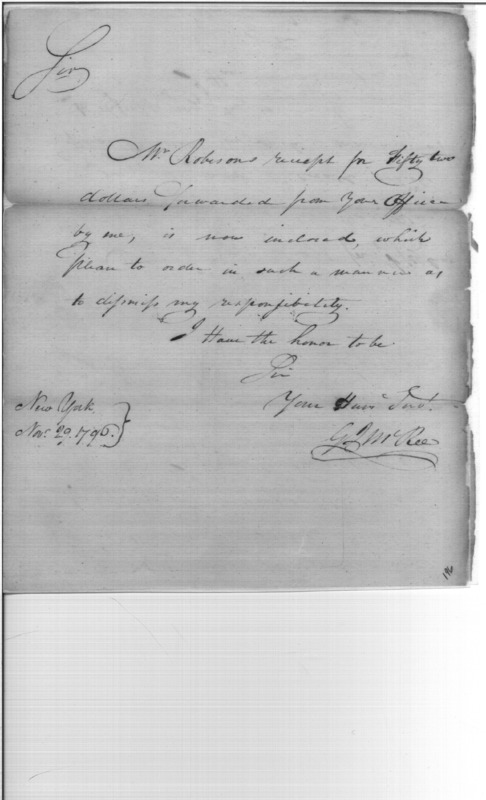 Sir
Mr Robisons reciept for Fifty two
dollars forwarded from Your Office
by me, is now inclosed, which
please to order in such a manner as
to dismiss my responsibility.
I Have the honor to be
Sir
Your Hum. Servt.
New York,
Nov. 1796.
McRee